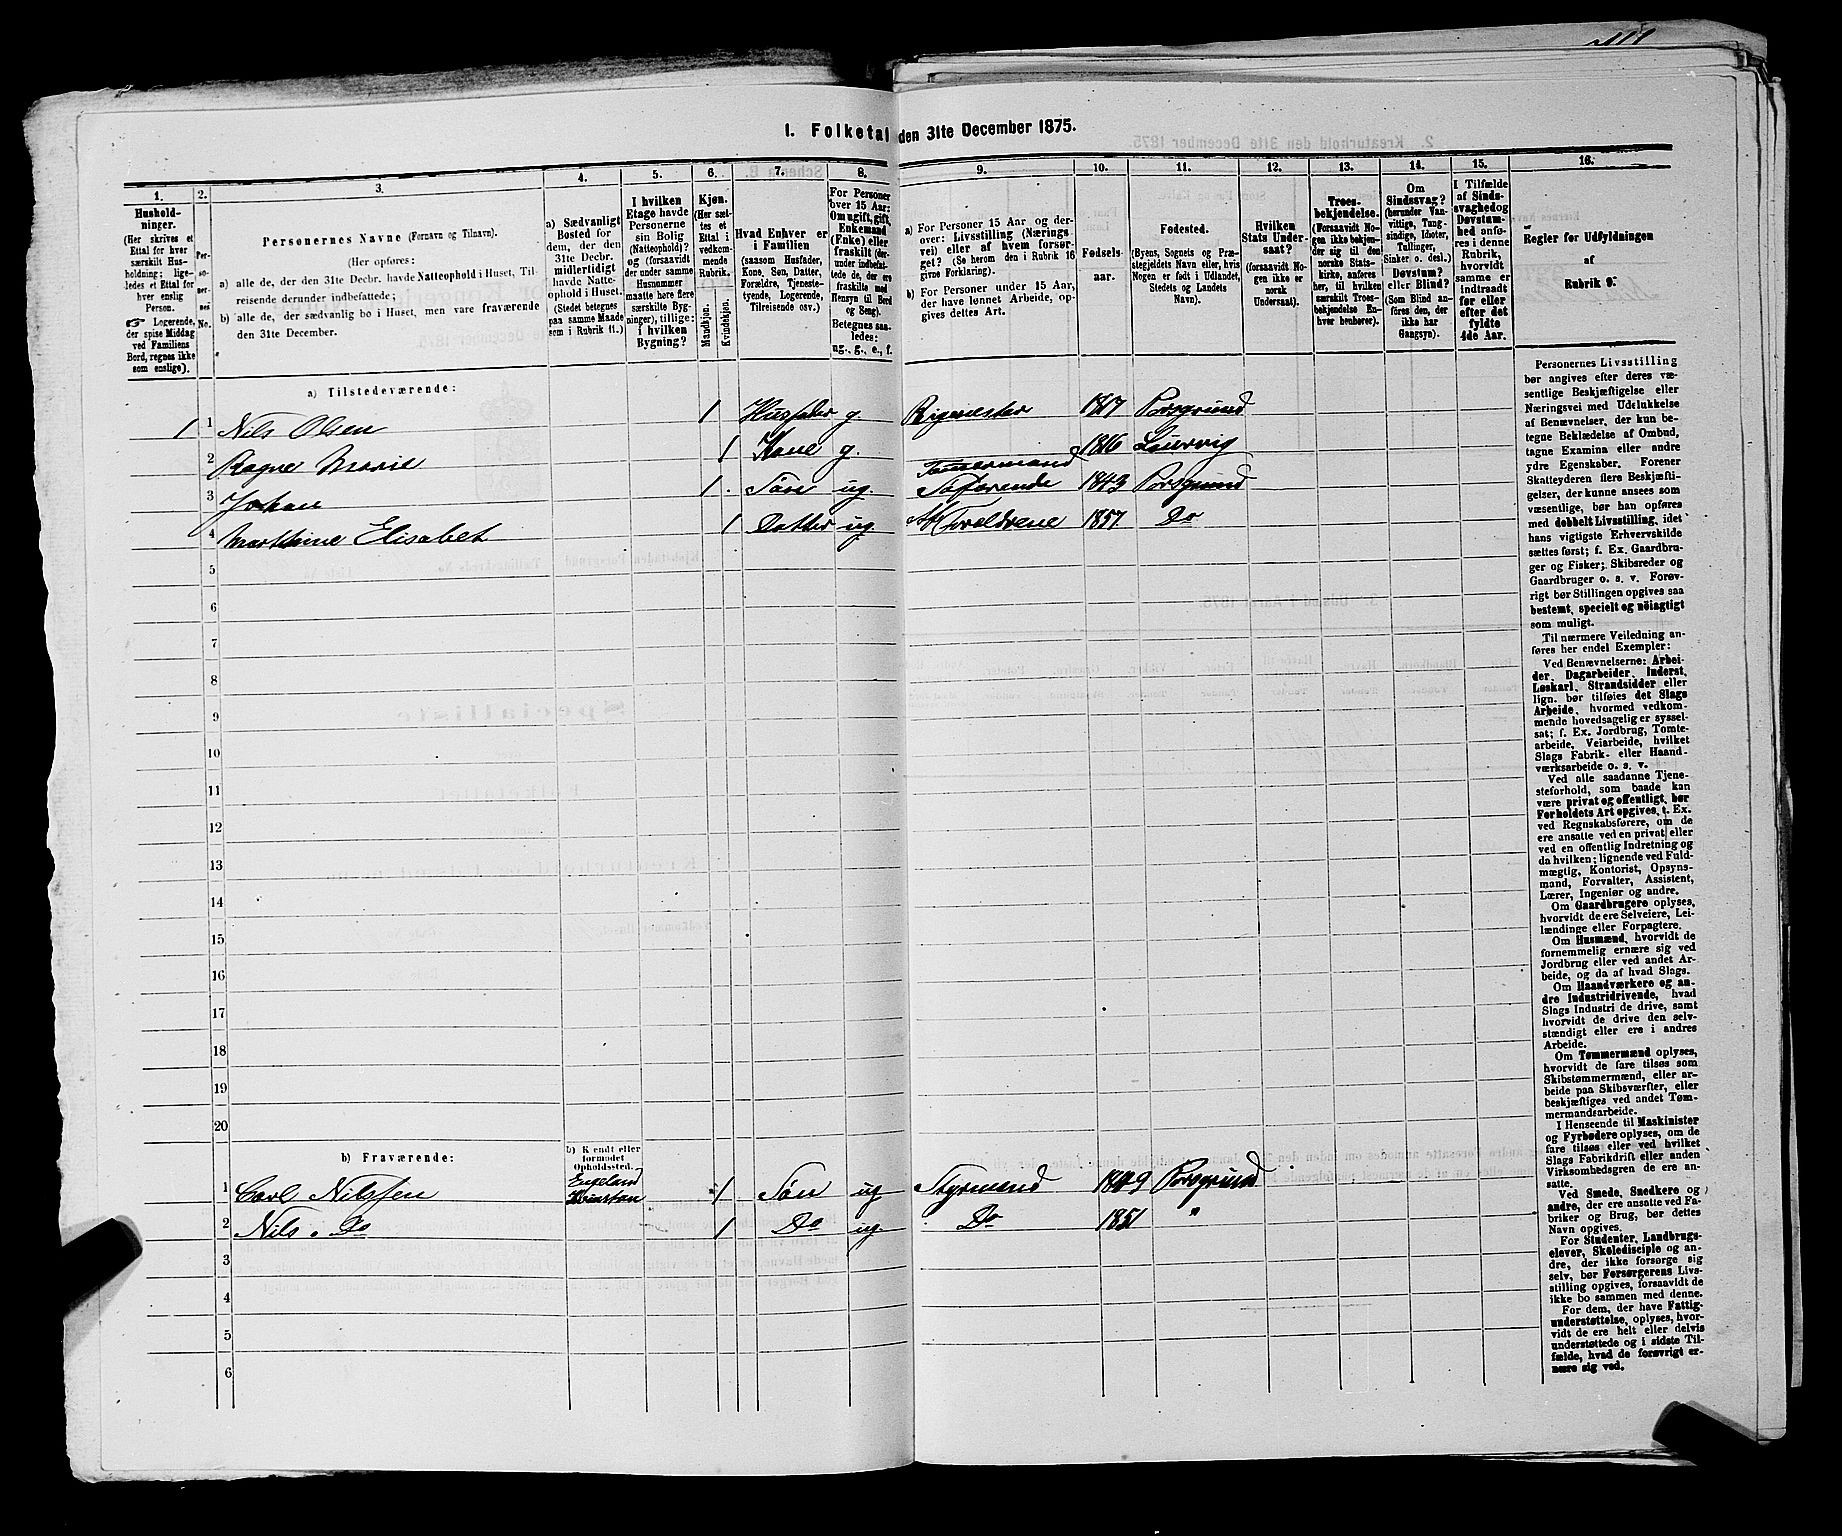 1. Folketal den 31te December 1875.
1.
2.
3.
4.
5.
6.
7.
8.
9.
10.
11.
12.
13.
14.
15.
16.
Hushold-
ninger.
(Her skrives et
Ettal for hver
særskilt Hus-
holdning; lige-
ledes et Ettal for
hver enslig
Person.
☞ Logerende,
der spise Middag
ved Familiens
Bord, regnes ikke
som enslige).
Per-
so-
ner-
nes
No.
Personernes Navne (Fornavn og Tilnavn).
(Her opføres:
a) alle de, der den 31te Decbr. havde Natteophold i Huset, Til-
reisende derunder indbefattede;
b) alle de, der sædvanlig bo i Huset, men vare fraværende
den 31te December.
a) Sædvanligt
Bosted for
dem, der den
31te Decbr.
midlertidigt
havde Natte-
ophold i Huset.
(Stedet betegnes
paa samme Maade
som i Rubrik 11.)
I hvilken
Etage havde
Personerne
sin Bolig
(Natteophold)?
og (forsaavidt
der under samme
Husnommer
maatte høre flere
særskilte Byg-
ninger), tillige:
i hvilken
Bygning?
Kjøn.
(Her sæt-
tes et
Ettal i
vedkom-
mende
Rubrik.
Mandkjøn.
Kvindekjøn.
Hvad Enhver er
i Familien
(saasom Husfader,
Kone, Søn, Datter,
Forældre, Tjeneste-
tyende, Logerende,
Tilreisende osv.)
For Personer
over 15 Aar:
Om ugift, gift,
Enkemand
(Enke) eller
fraskilt (der-
under indbefat-
tede de, der ere
fraskilte med
Hensyn til Bord
og Seng).
Betegnes saa-
ledes:
ug., g., e., f.
a) For Personer 15 Aar og der-
over: Livsstilling (Nærings-
vei) eller af hvem forsør-
get? (Se herom den i Rubrik 16
givne Forklaring).
b) For Personer under 15 Aar,
der have lønnet Arbeide, op-
gives dettes Art.
Fødsels-
aar.
Fødested.
(Byens, Sognets og Præ-
stegjeldets Navn eller, hvis
Nogen er født i Udlandet,
Stedets og Landets
Navn).
Hvilken
Stats Under-
saat?
(forsaavidt No-
gen ikke er
norsk
Undersaat).
Troes-
bekjendelse.
(Forsaavidt No-
gen ikke bekjen-
der sig til den
norske Stats-
kirke, anføres
her, til hvilken
særskilt Troes-
bekjendelse En-
hver henhører).
Om
Sindssvag?
(herunder Van-
vittige, Tung-
sindige, Idioter,
Tullinger,
Sinker o. desl.)
Døvstum?
eller Blind?
(Som Blind an-
føres den, der
ikke har
Gangsyn).
I Tilfælde
af Sinds-
svaghed og
Døvstum-
hed anfø-
res i denne
Rubrik,
hvorvidt
samme er
indtraadt
før eller
efter det
fyldte
4de Aar.
Regler for Udfyldningen
af
Rubrik 9.
a) Tilstedeværende:
1 1 Nils Olsen 1 Husfader g Rigmester 1817 Porsgrund
2 Ragne Marie 1 Kone g. 1816 Laurvig
Tømmermand
3 Johan 1 Søn ug. Søfarende 1843 Porsgrund
4 Marthine Elisabet 1 Datter ug Forældrene 1857 Do
5
6
7
8
9
10
11
12
13
14
15
16
17
18
19
20
b) Fraværende:
b) Kendt eller
formodet
Opholdssted.
Engeland
1 Carl Nilssen 1 Søn ug Styrmand 1849 Porsgrund
2 Nils . Do 1 Do ug. Do 1851 "
3
4
5
6
Personernes Livsstilling
bør angives efter deres væ-
sentlige Beskjæftigelse eller
Næringsvei med Udelukkelse
af Benævnelser, der kun be-
tegne Beklædelse af Ombud,
tagne Examina eller andre
ydre Egenskaber. Forener
Skatteyderen flere Beskjæfti-
gelser, der kunne ansees som
væsentlige, bør han opføres
med dobbelt Livsstilling, idet
hans vigtigste Erhvervskilde
sættes først; f. Ex. Gaardbru-
ger og Fisker; Skibsreder og
Gaardbruger o. s. v. Forøv-
rigt bør Stillingen opgives saa
bestemt, specielt og nöiagtigt
som muligt.
Til nærmere Veiledning an-
føres her endel Exempler:
Ved Benævnelserne: Arbei-
der, Dagarbeider, Inderst,
Løskarl, Strandsidder eller
lign. bør tilføies det Slags
Arbeide, hvormed vedkom-
mende hovedsagelig er syssel-
sat; f. Ex. Jordbrug, Tomte-
arbeide, Veiarbeide, hvilket
Slags Fabrik- eller Haand-
værksarbeide o. s. v.
Ved alle saadanne Tjene-
steforhold, som baade kan
være privat og offentligt, bør
Forholdets Art opgives, t. Ex.
ved Regnskabsførere, om de
ere ansatte ved en privat eller
ved en offentlig Indretning og
da hvilken; lignende ved Fuld-
mægtig, Kontorist, Opsyns-
mand, Forvalter, Assistent,
Lærer, Ingeniør og andre.
Om Gaardbrugere oplyses,
hvorvidt de ere Selveiere, Lei-
lændinge eller Forpagtere.
Om Husmænd, hvorvidt de
fornemmelig ernære sig ved
Jordbrug eller ved andet Ar-
beide, og da af hvad Slags.
Om Haandværkere og an-
dre Industridrivende, hvad
Slags Industri de drive, samt
hvorvidt de drive den selv-
stændigt eller ere i andres
Arbeide.
Om Tømmermænd oplyses,
hvorvidt de fare tilsøs som
Skibstømmermænd, eller ar-
beide paa Skibsværfter, eller
beskjæftiges ved andet Tøm-
mermandsarbeide.
I Henseende til Maskinister
og Fyrbødere oplyses, om de
fare tilsøs eller ved hvilket
Slags Fabrikdrift eller anden
Virksombedsgren de ere an-
satte.
Ved Smede, Snedkere og
andre, der ere ansatte ved Fa-
briker og Brug, bør dettes
Navn opgives.
For Studenter, Landbrugs-
elever, Skoledisciple og an-
dre, der ikke forsørge sig
selv, bør Forsørgerens Livs-
stilling opgives, forsaavidt de
ikke bo sammen med denne.
For dem, der have Fattig-
understøttelse, oplyses, hvor-
vidt de ere helt eller delvis
understøttede og i sidste Til-
fælde, hvad de forøvrigt er-
nære sig ved.